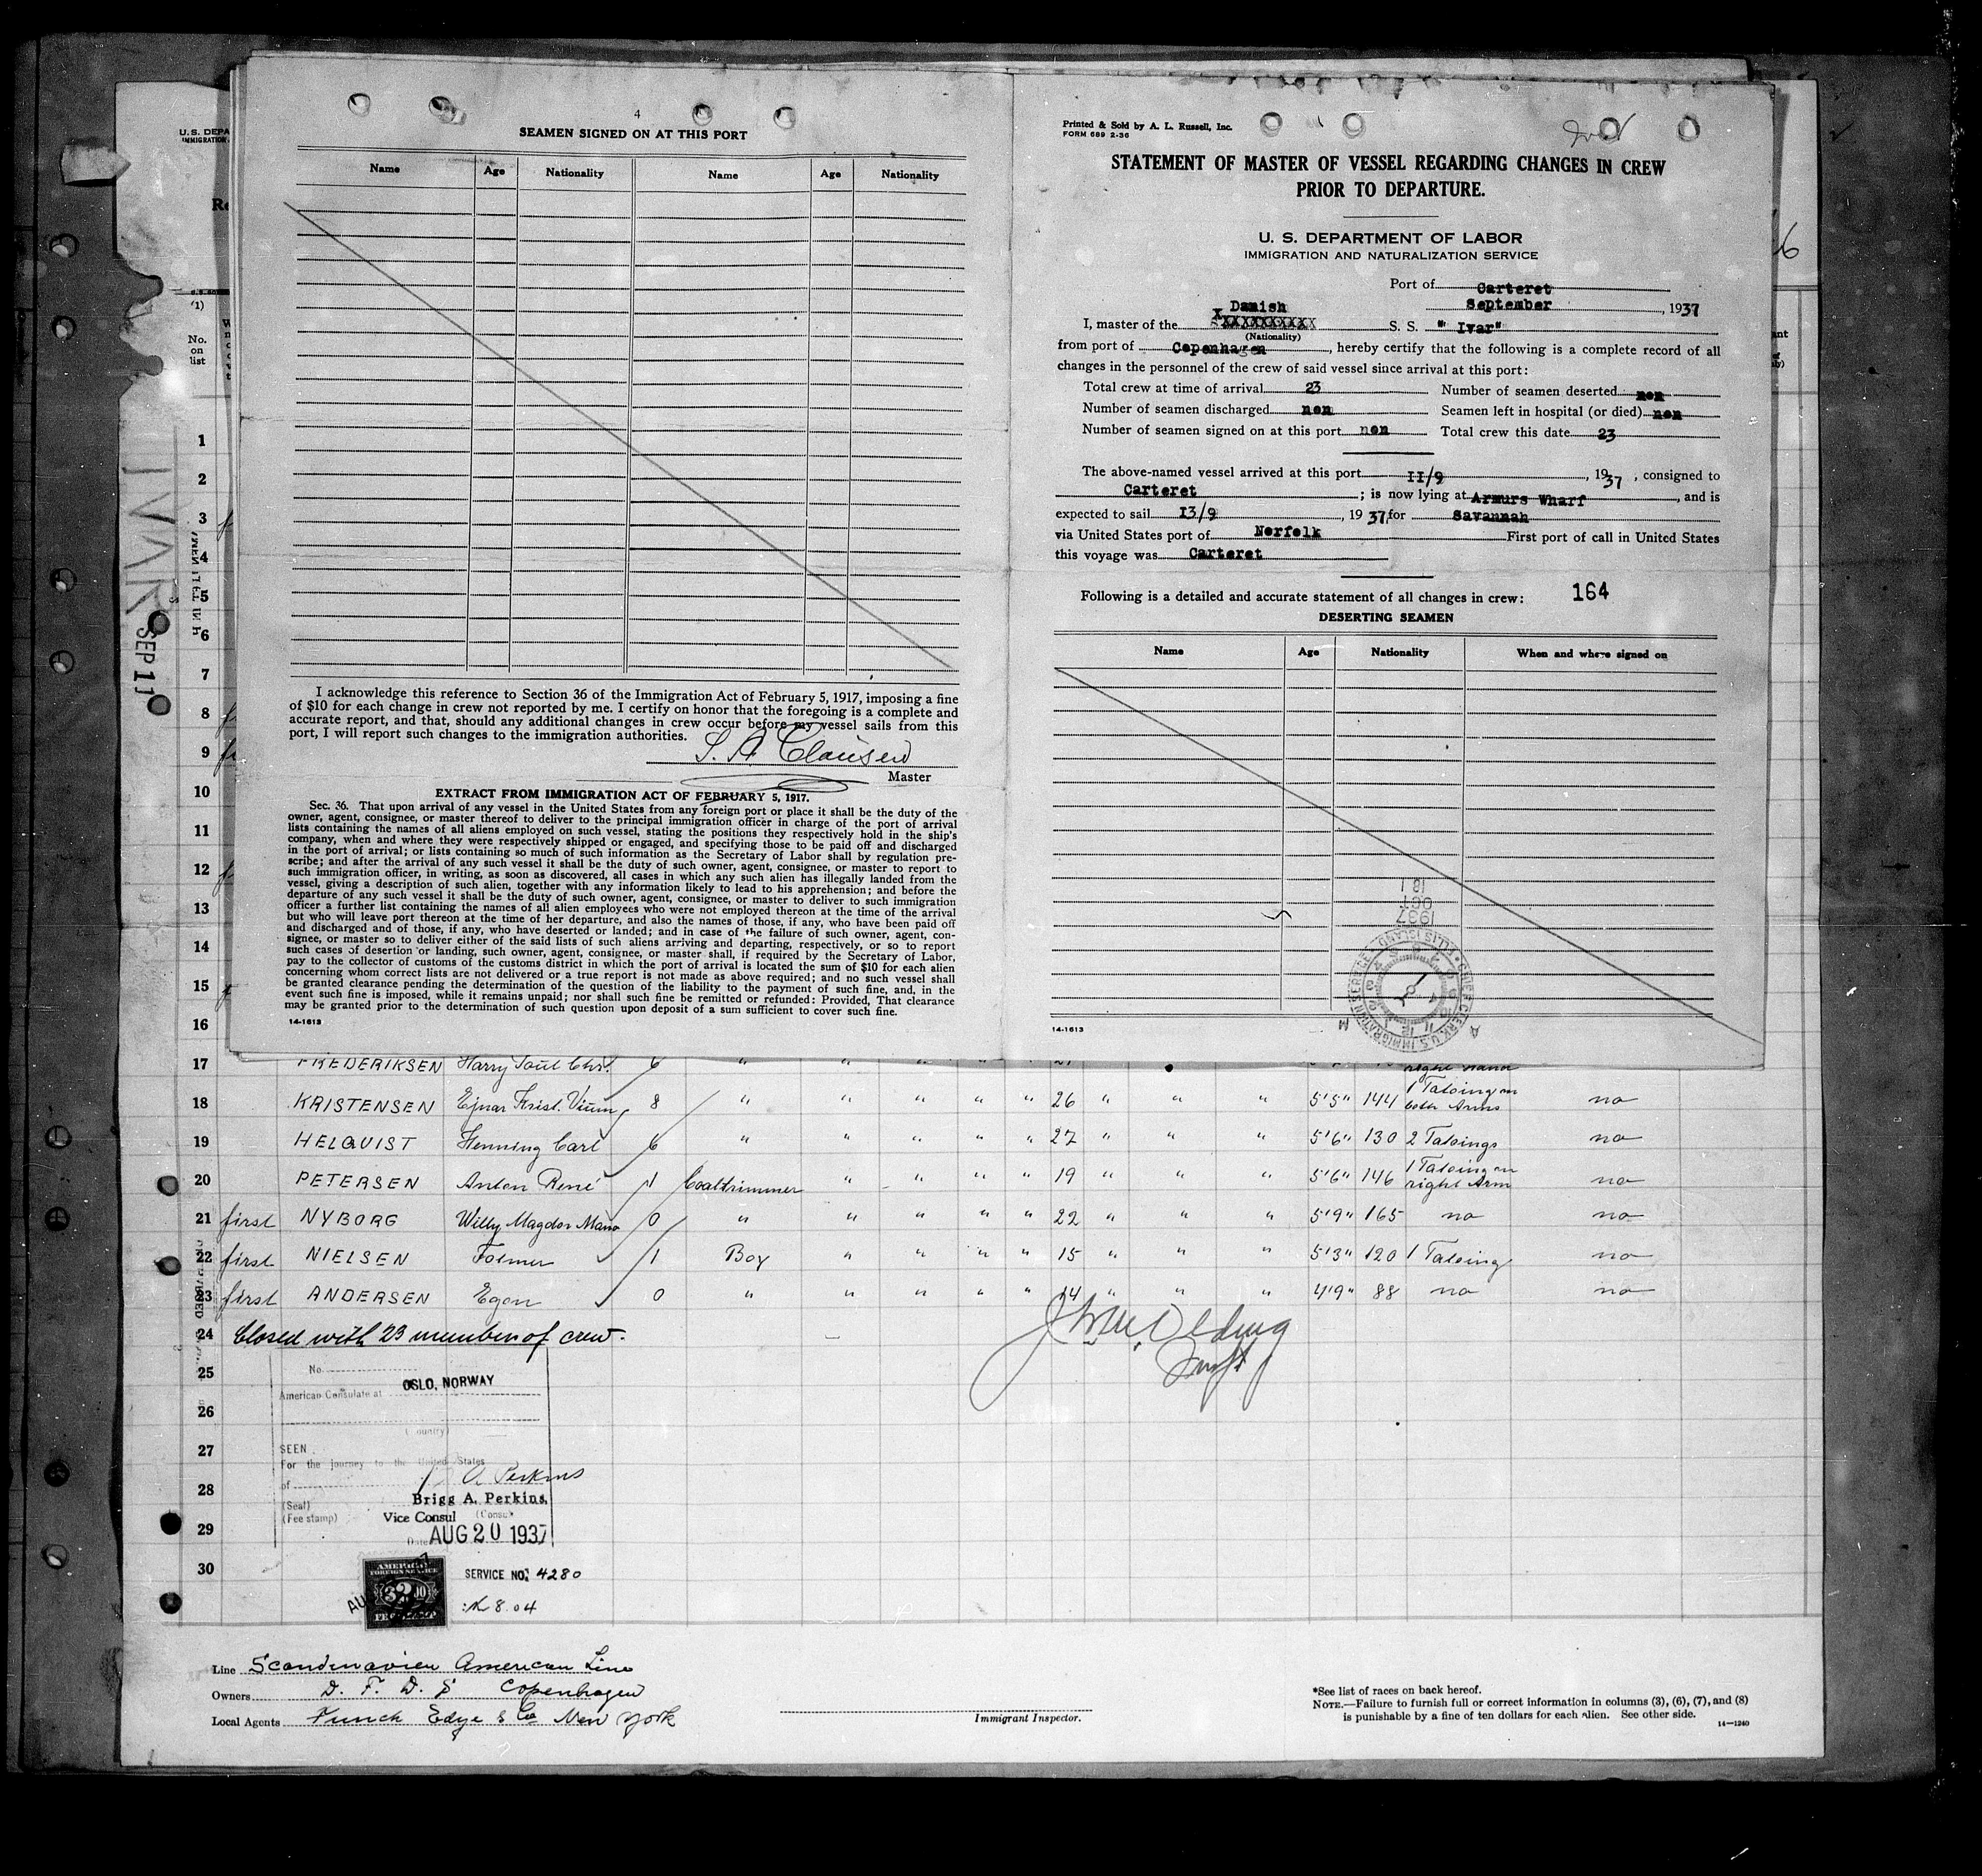 4
SEAMEN SIGNED ON AT THIS PORT
Name Age Nationality Name Age Nationality
I acknowledge this reference to Section 36 of the Immigration Act of February 5, 1917, imposing a fine
of $10 for each change in crew not reported by me. I certify on honor that the foregoing is a complete and
accurate report, and that, should any additional changes in crew occur before my vessel sails from this
port, I will report such changes to the immigration authorities.
S. A. Clausen
Master
EXTRACT FROM IMMIGRATION ACT OF FEBRUARY 5, 1917.
Sec. 36. That upon arrival of any vessel in the United States from any foreign port or place it shall be the duty of the
owner, agent, consignee, or master thereof to deliver to the principal immigration officer in charge of the port of arrival
lists containing the names of all aliens employed on such vessel, stating the positions they respectively hold in the ship's
company, when and where they were respectively shipped or engaged, and specifying those to be paid off and discharged
in the port of arrival; or lists containing so much of such information as the Secretary of Labor shall by regulation pre-
scribe; and after the arrival of any such vessel it shall be the duty of such owner, agent, consignee, or master to report to
such immigration officer, in writing, as soon as discovered, all cases in which any such alien has illegally landed from the
vessel, giving a description of such alien, together with any information likely to lead to his apprehension; and before the
departure of any such vessel it shall be the duty of such owner, agent, consignee, or master to deliver to such immigration
officer a further list containing the names of all alien employees who were not employed thereon at the time of the arrival
but who will leave port thereon at the time of her departure, and also the names of those, if any, who have been paid off
and discharged and of those, if any, who have deserted or landed; and in case of the failure of such owner, agent, con-
signee, or master so to deliver either of the said lists of such aliens arriving and departing, respectively, or so to report
such cases of desertion or landing, such owner, agent, consignee, or master shall, if required by the Secretary of Labor,
pay to the collector of customs of the customs district in which the port of arrival is located the sum of $10 for each alien
concerning whom correct lists are not delivered or a true report is not made as above required; and no such vessel shall
be granted clearance pending the determination of the question of the liability to the payment of such fine, and, in the
event such fine is imposed, while it remains unpaid; nor shall such fine be remitted or refunded: Provided, That clearance
may be granted prior to the determination of such question upon deposit of a sum sufficient to cover such fine.
14-1613
Printed & Sold by A. L. Russell, Inc.
FORM 689 2-36
STATEMENT OF MASTER OF VESSEL REGARDING CHANGES IN CREW
PRIOR TO DEPARTURE.
U. S. DEPARTMENT OF LABOR
IMMIGRATION AND NATURALIZATION SERVICE
Port of Carteret
September, 1937
I, master of the Danish S. S. " Ivar"
(Nationality)
from port of Copenhagen, hereby certify that the following is a complete record of all
changes in the personnel of the crew of said vessel since arrival at this port:
Total crew at time of arrival 23 Number of seamen deserted non
Number of seamen discharged non Seamen left in hospital (or died) non
Number of seamen signed on at this port non Total crew this date 23
The above-named vessel arrived at this port II/9, 1937, consigned to
Carteret; is now lying at Armurs Wharf, and is
expected to sail I3/9, 1937, for Savannah
via United States port of Norfolk First port of call in United States
this voyage was Carteret
Following is a detailed and accurate statement of all changes in crew: 164
DESERTING SEAMEN
Name Age Nationality When and where signed on
1937
OCT
18
CHIEF CLERK U.S. IMMIGRATION SERVICE ELLIS ISLAND
14-1613
U.S. DEPA
IMMIGRATION
(1)
No.
on
list
IVAR
SEP 11
1
2
3
4
5
6
7
8
9
10
11
12
13
14
15
16
17 FREDERIKSEN Harry Poul Chr. 6 " " " " 21 right hand
18 KRISTENSEN Ejnar Krist. Vium 8 " " " " 26 " " " 5'5" 144 1 Tatoing on both Arms no
19 HELQVIST Henning Carl 6 " " " " 27 " " " 5'6" 130 2 Tatoings no
20 PETERSEN Anton René 1 Coaltrimmer " " " " 19 " " " 5'6" 146 1 Tatoing on right Arm no
21 first NYBORG Willy Magdor Mano 0 " " " " " 22 " " " 5'9" 165 no no
22 first NIELSEN Folmer 1 Boy " " " " 15 " " " 5'3" 120 1 Tatoing no
23 first ANDERSEN Egon 0 " " " " " 14 " " " 4'9" 88 no no
24 Closed with 23 members of crew.
25
26
27
28
29
30
No.
American Consulate at OSLO, NORWAY
(Country)
SEEN
For the journey to the United States
of
A. Perkins
(Seal) Brigg A. Perkins,
(Fee stamp) Vice Consul (Consul)
Date AUG 20 1937
AMERICAN
FOREIGN SERVICE
SERVICE NO. 4280
8.04
Line Scandinavien American Line
Owners D. F. D. S Copenhagen
Local Agents Funch Edye & Co New York
Immigrant Inspector.
*See list of races on back hereof.
NOTE.—Failure to furnish full or correct information in columns (3), (6), (7), and (8)
is punishable by a fine of ten dollars for each alien. See other side.
14—1240